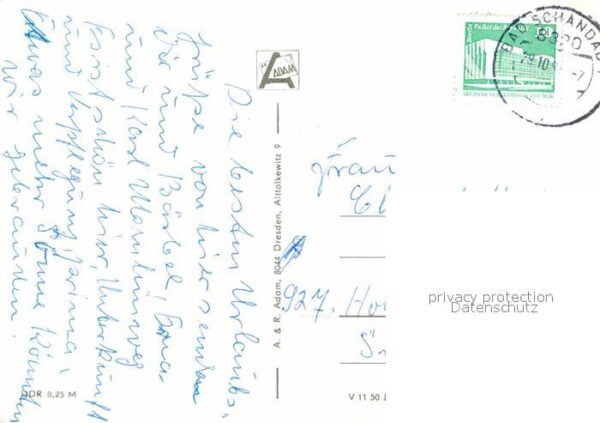 Die besten Urlaubs-
grüße von hier senden
und Bärbel, Erna
und Karl
Es ist schön hier, Unterkunft
und Verpflegung prima,
Etwas mehr Sonne könnten
wir gebrauchen.
ADAM
A. & R. Adam, 8044 Dresden, Alttolkewitz 9
DDR 0,25 M
V 11 50 J
BAD SCHANDAU
8320
29.10
10
Frau
927.
privacy protection
Datenschutz